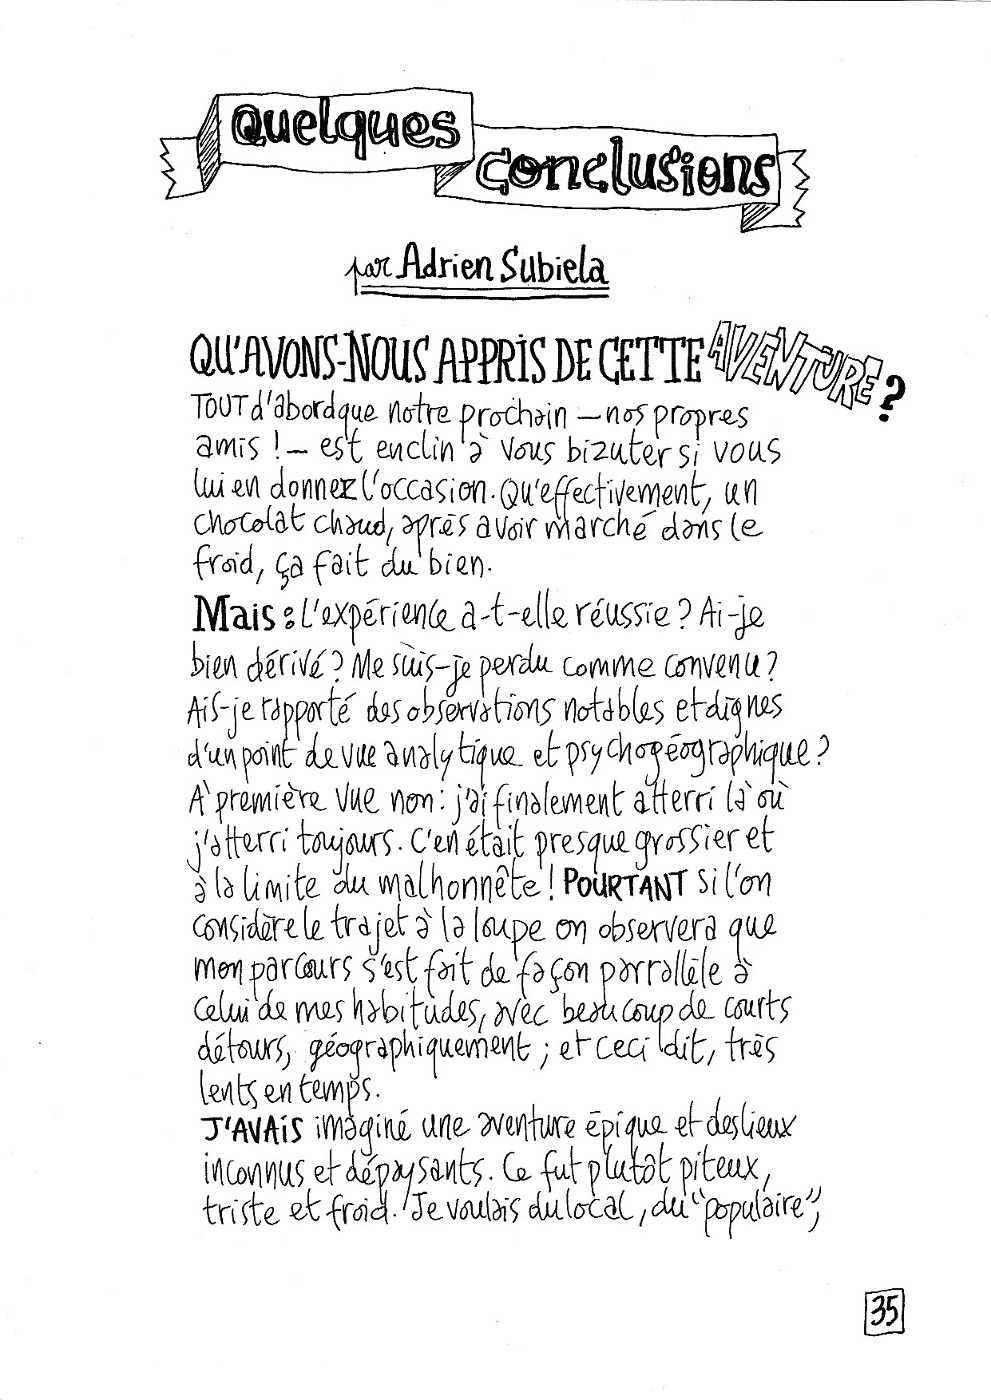 Quelques
conclusions
par Adrien Subiela
QU'AVONS-NOUS APPRIS DE CETTE AVENTURE ?
TOUT d'abord que notre prochain — nos propres
amis ! — est enclin à vous bizuter si vous
lui en donnez l'occasion. Qu'effectivement, un
chocolat chaud, après avoir marché dans le
froid, ça fait du bien.
Mais : L'expérience a-t-elle réussie ? Ai-je
bien dérivé ? Me suis-je perdu comme convenu ?
Ais-je rapporté des observations notables et dignes
d'un point de vue analytique et psychogéographique ?
A première vue non : j'ai finalement atterri là où
j'atterri toujours. C'en était presque grossier et
à la limite du malhonnête ! POURTANT si l'on
considère le trajet à la loupe on observera que
mon parcours s'est fait de façon parrallèle à
celui de mes habitudes, avec beaucoup de courts
détours, géographiquement ; et ceci dit, très
lents en temps.
J'AVAIS imaginé une aventure épique et des lieux
inconnus et dépaysants. Ce fut plutôt piteux,
triste et froid. Je voulais du local, du "populaire",
35